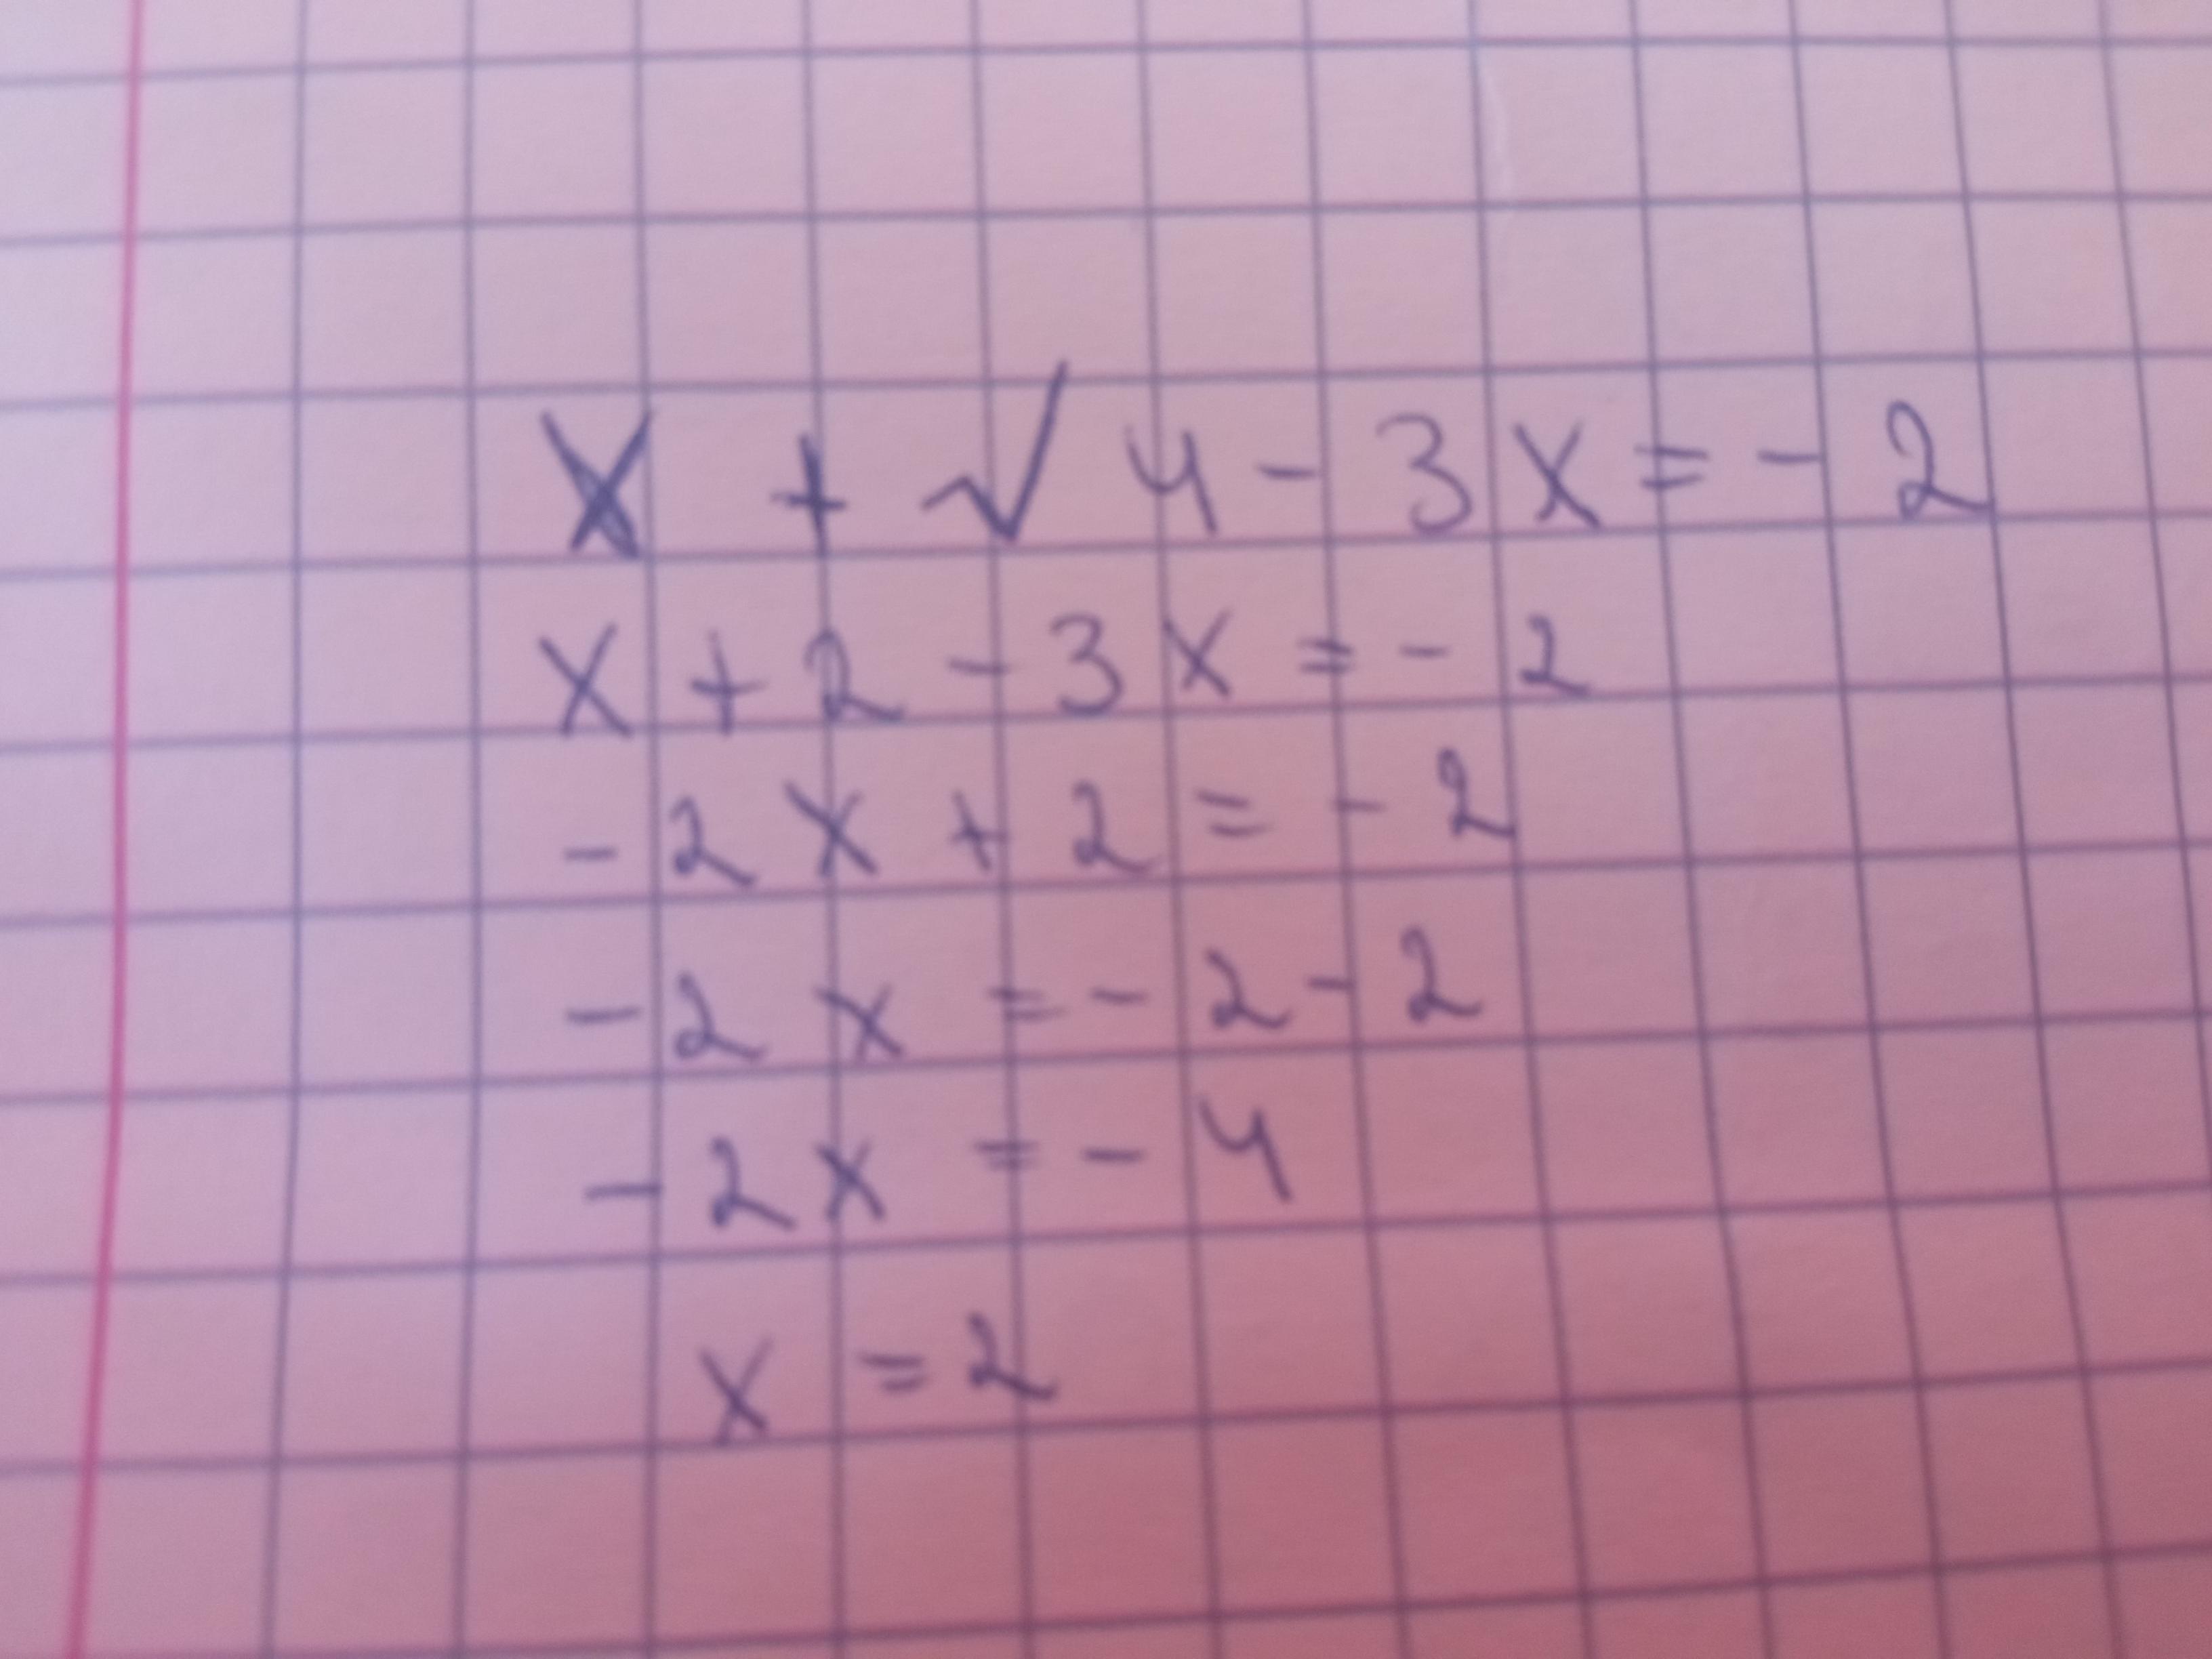 x + √4 - 3x = - 2
x + 2 - 3x = - 2
- 2x + 2 = - 2
- 2x = - 2 - 2
- 2x = - 4
x = 2